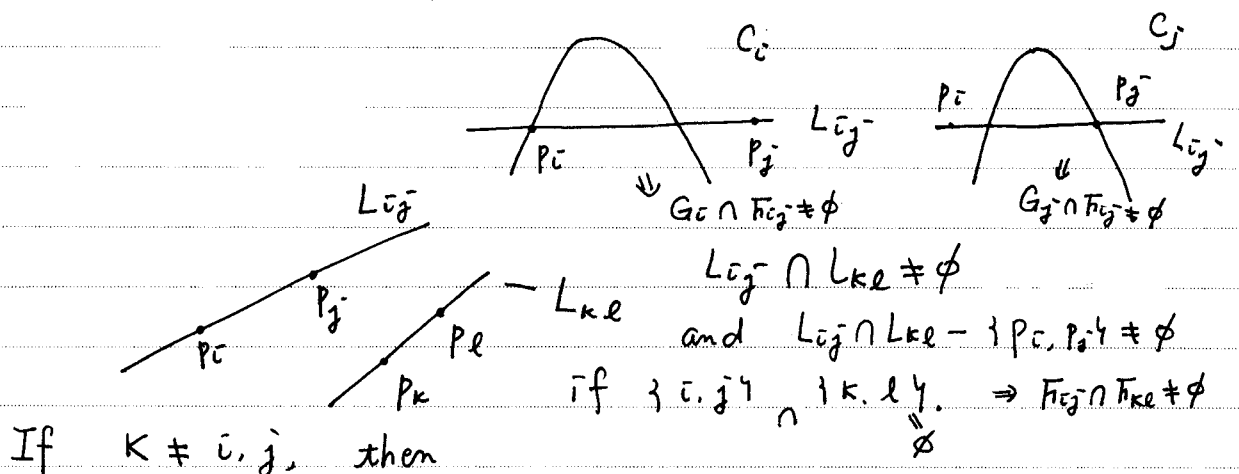 C_i
C_j
p_i p_j L_ij
p_i p_j L_ij
⇓ G_i ∩ F_ij ≠ ∅
⇓ G_j ∩ F_ij ≠ ∅
L_ij
p_i p_j
L_kl
p_k p_l
L_ij ∩ L_kl ≠ ∅
and L_ij ∩ L_kl - {p_i, p_j} ≠ ∅
if {i, j} ∩ {k, l} = ∅. ⇒ F_ij ∩ F_kl ≠ ∅
If K ≠ i, j, then